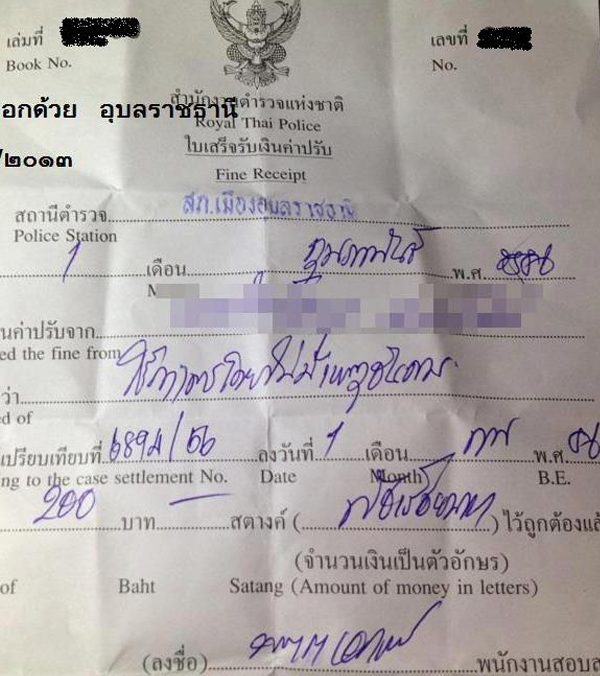 เล่มที่ เลขที่
Book No. No.
อกด้วย อุบลราชธานี
สำนักงานตำรวจแห่งชาติ
Royal Thai Police
/๒๐๑๓
ใบเสร็จรับเงินค่าปรับ
Fine Receipt
สถานีตำรวจ สภ.เมืองอุบลราชธานี
Police Station
1 เดือน กุมภาพันธ์ พ.ศ.
M
นค่าปรับจาก
ed the fine from
ว่า
ed of
เปรียบเทียบที่ 6894/56 ลงวันที่ 1 เดือน กพ พ.ศ.
ng to the case settlement No. Date Month B.E.
200 บาท สตางค์ ( ) ไว้ถูกต้องแล้
(จำนวนเงินเป็นตัวอักษร)
of Baht Satang (Amount of money in letters)
(ลงชื่อ) พนักงานสอบส